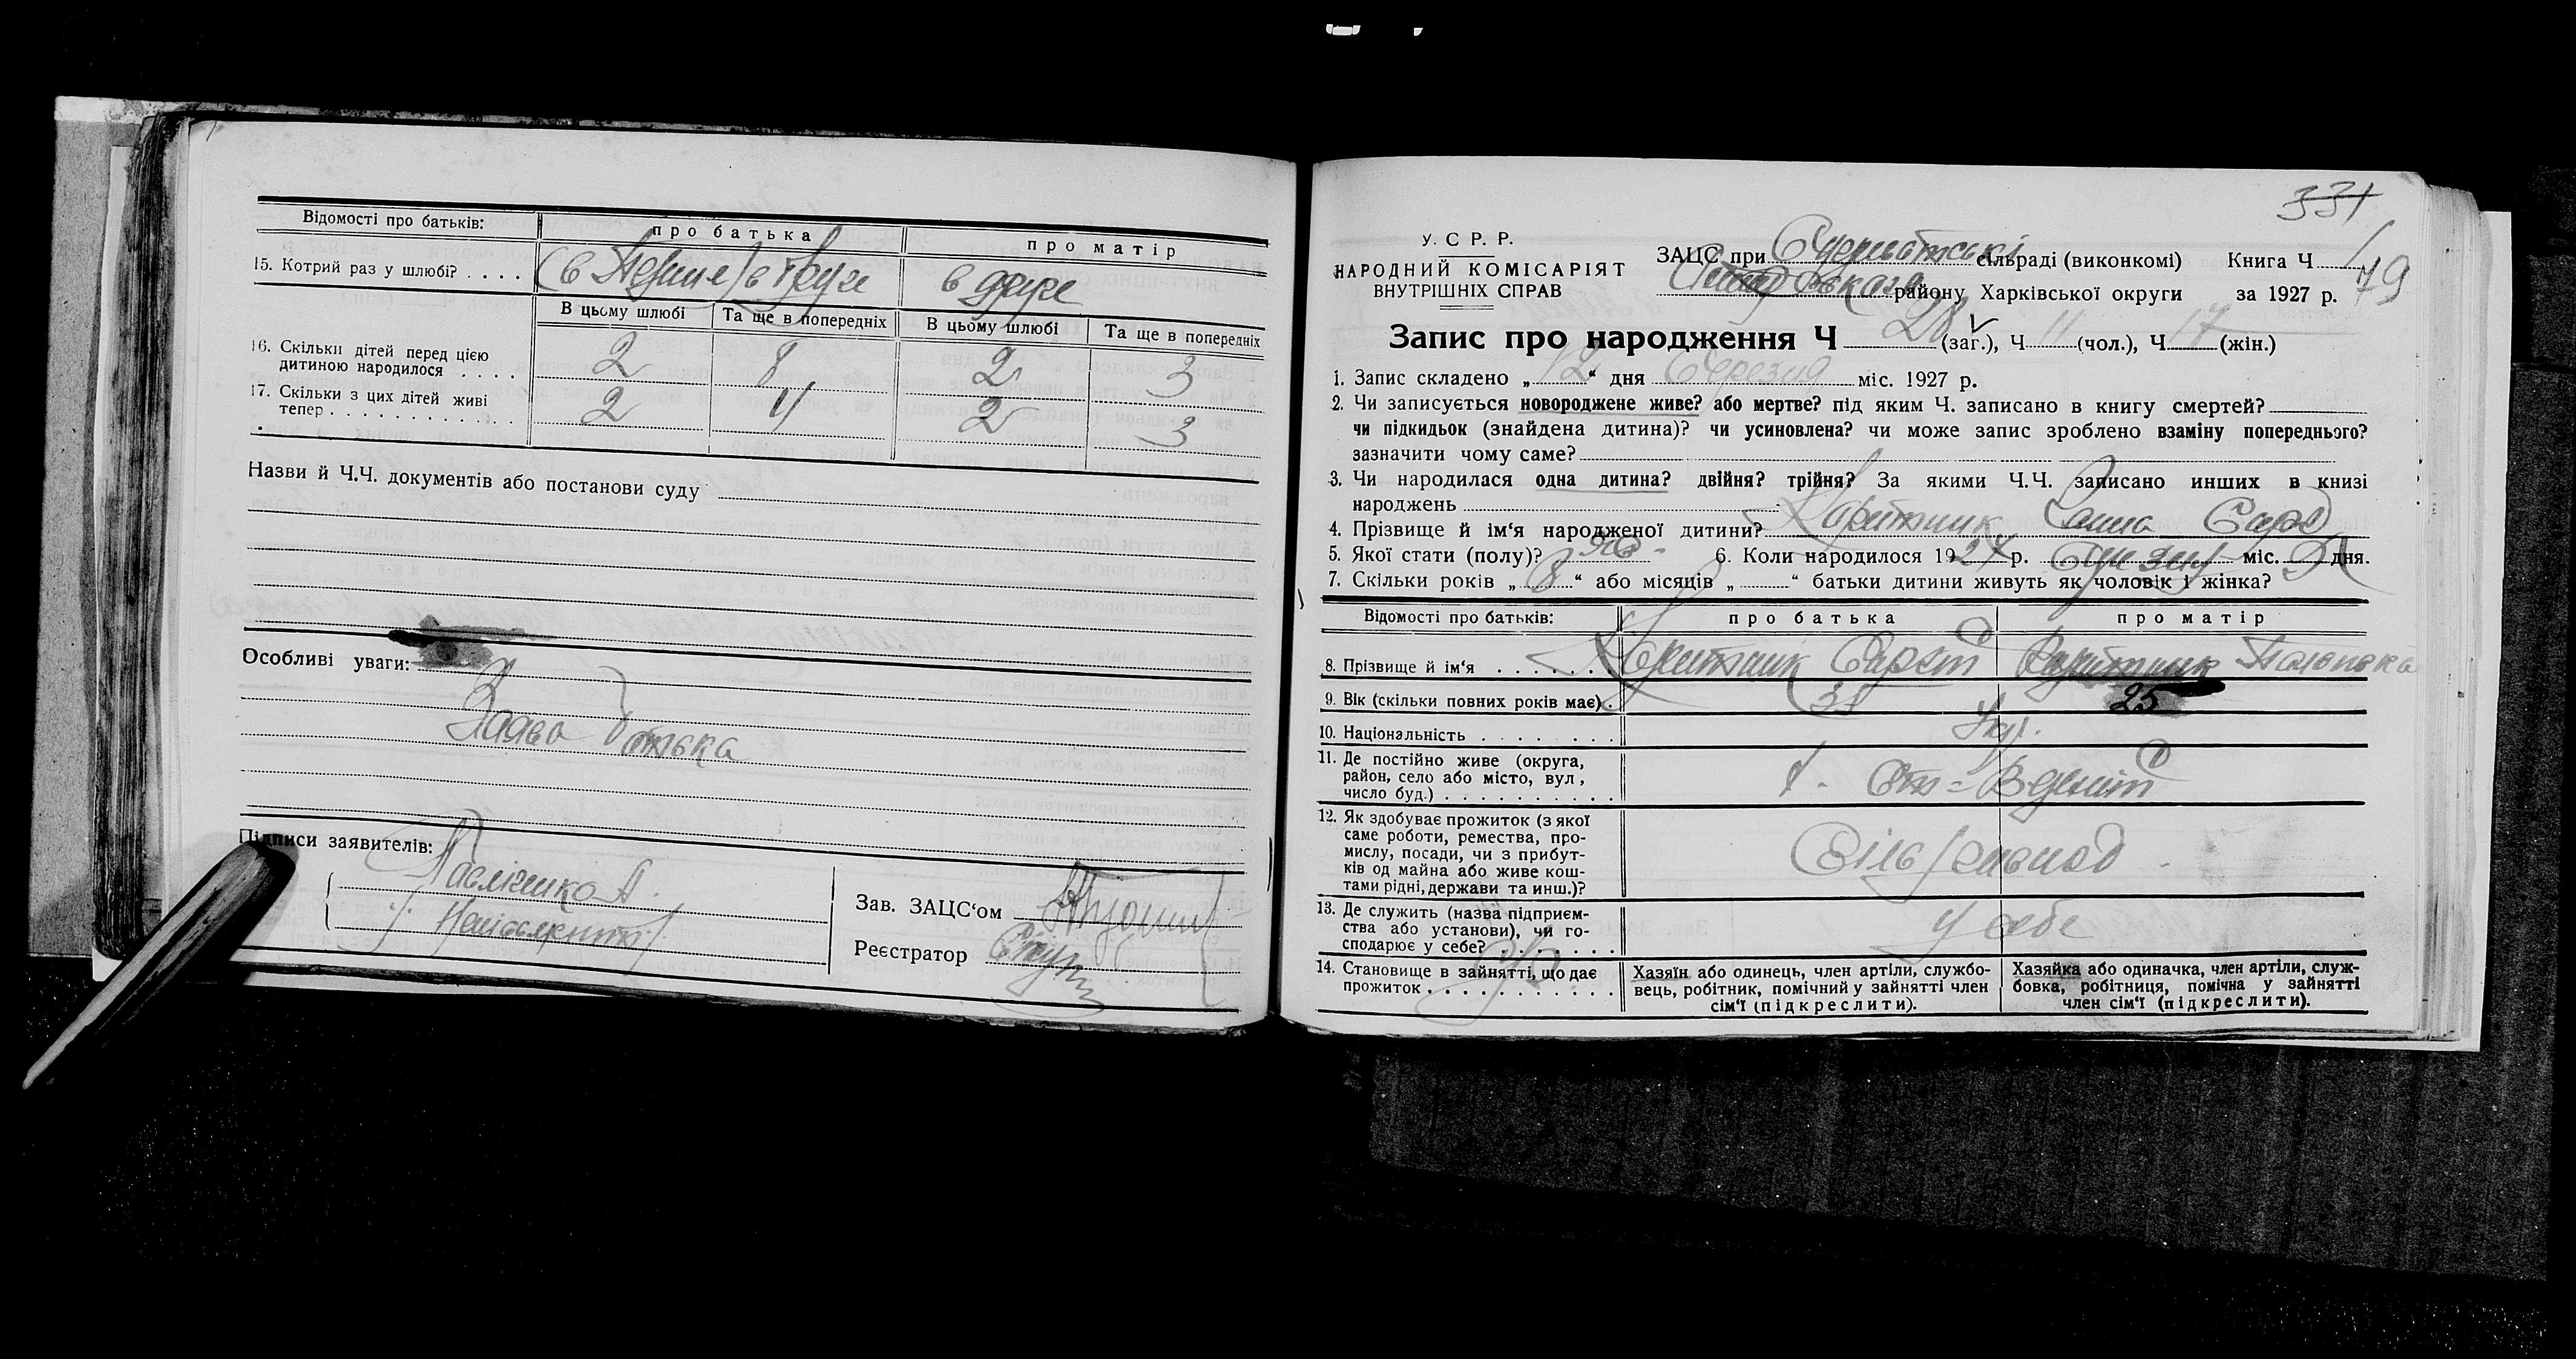 Відомості про батьків:
про батька
про матір
15. Котрий раз у шлюбі? . . . .
(в Перше) в друге
в друге
В цьому шлюбі
Та ще в попередніх
В цьому шлюбі
Та ще в попередніх
16. Скільки дітей перед цією
дитиною народилося . . . .
2
8
2
3
17. Скільки з цих дітей живі
тепер . . . . . . . . . .
2
4
2
3
Назви й Ч.Ч. документів або постанови суду
Особливі уваги:
Заява батька
Підписи заявителів:
Зав. ЗАЦС‘ом
Реєстратор
331
У. С. Р. Р.
НАРОДНИЙ КОМІСАРІЯТ
ВНУТРІШНІХ СПРАВ
ЗАЦС при сільраді (виконкомі)
району Харківської округи
Книга Ч
за 1927 р.
179
Запис про народження Ч 28 (заг.), Ч 11 (чол.), Ч 17 (жін.)
1. Запис складено „ 12 “ дня березня міс. 1927 р.
2. Чи записується новороджене живе? або мертве? під яким Ч. записано в книгу смертей?
чи підкидьок (знайдена дитина)? чи усиновлена? чи може запис зроблено взаміну попереднього?
зазначити чому саме?
3. Чи народилася одна дитина? двійня? трійня? За якими Ч.Ч. записано инших в книзі
народжень
4. Прізвище й ім‘я народженої дитини?
5. Якої стати (полу)? жін. 6. Коли народилося 1927 р. міс. дня.
7. Скільки років „ 8 “ або місяців „ “ батьки дитини живуть як чоловік і жінка?
Відомості про батьків:
про батька
про матір
8. Прізвище й ім‘я . . . . . .
9. Вік (скільки повних років має) .
25
10. Національність . . . . . . .
Укр.
11. Де постійно живе (округа,
район, село або місто, вул,
число буд.) . . . . . . . . . .
12. Як здобуває прожиток (з якої
саме роботи, ремества, про-
мислу, посади, чи з прибут-
ків од майна або живе кош-
тами рідні, держави та инш.)?
13. Де служить (назва підприєм-
ства або установи), чи го-
сподарює у себе? . . . . . . .
у себе
14. Становище в зайнятті, що дає
прожиток . . . . . . . . . . .
Хазяїн або одинець, член артіли, службо-
вець, робітник, помічний у зайнятті член
сім‘ї (підкреслити).
Хазяйка або одиначка, член артіли, служ-
бовка, робітниця, помічна у зайнятті
член сім‘ї (підкреслити).